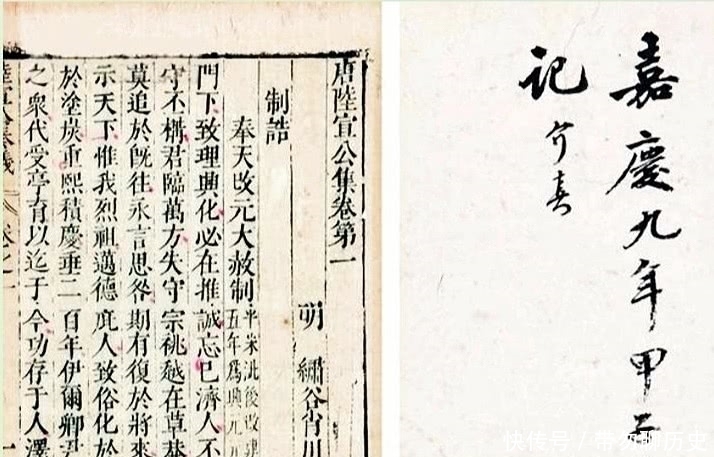 唐陸宣公集卷第一
明 繡谷
制誥
奉天改元大赦制
門下致理興化必在推誠忘己濟人不
守不構君臨萬方失守宗祧越在草莽
莫追於既往永言思咎期有復於將來
示天下惟我烈祖邁德庇人致俗化於
於塗炭重熙積慶垂二百年伊爾卿
之衆代受亭育以迄于今功存于人澤
嘉慶九年甲子
記
快传号